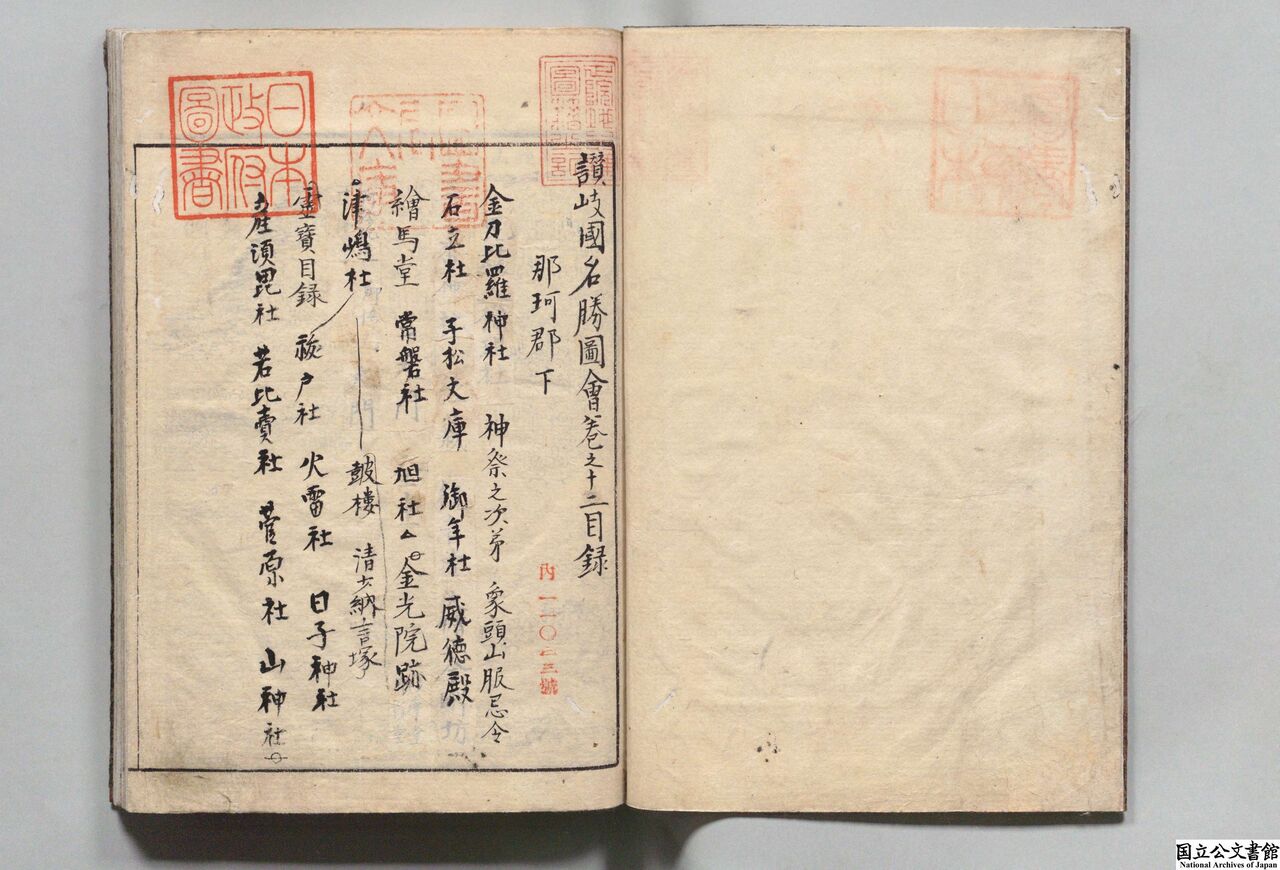 讃岐國名勝圖會巻之十二目録
那珂郡下
金刀比羅神社 神祭之次第 象頭山服忌令
石立社 子松文庫 御年社 威徳殿
繪馬堂 常磐社 旭社 金光院跡
津嶋社 鼓樓 清少納言塚
霊寶目録 祓戸社 火雷社 日子神社
産須毘社 若比賣社 菅原社 山神社
内一一〇二三號
日本政府圖書
国立公文書館
National Archives of Japan